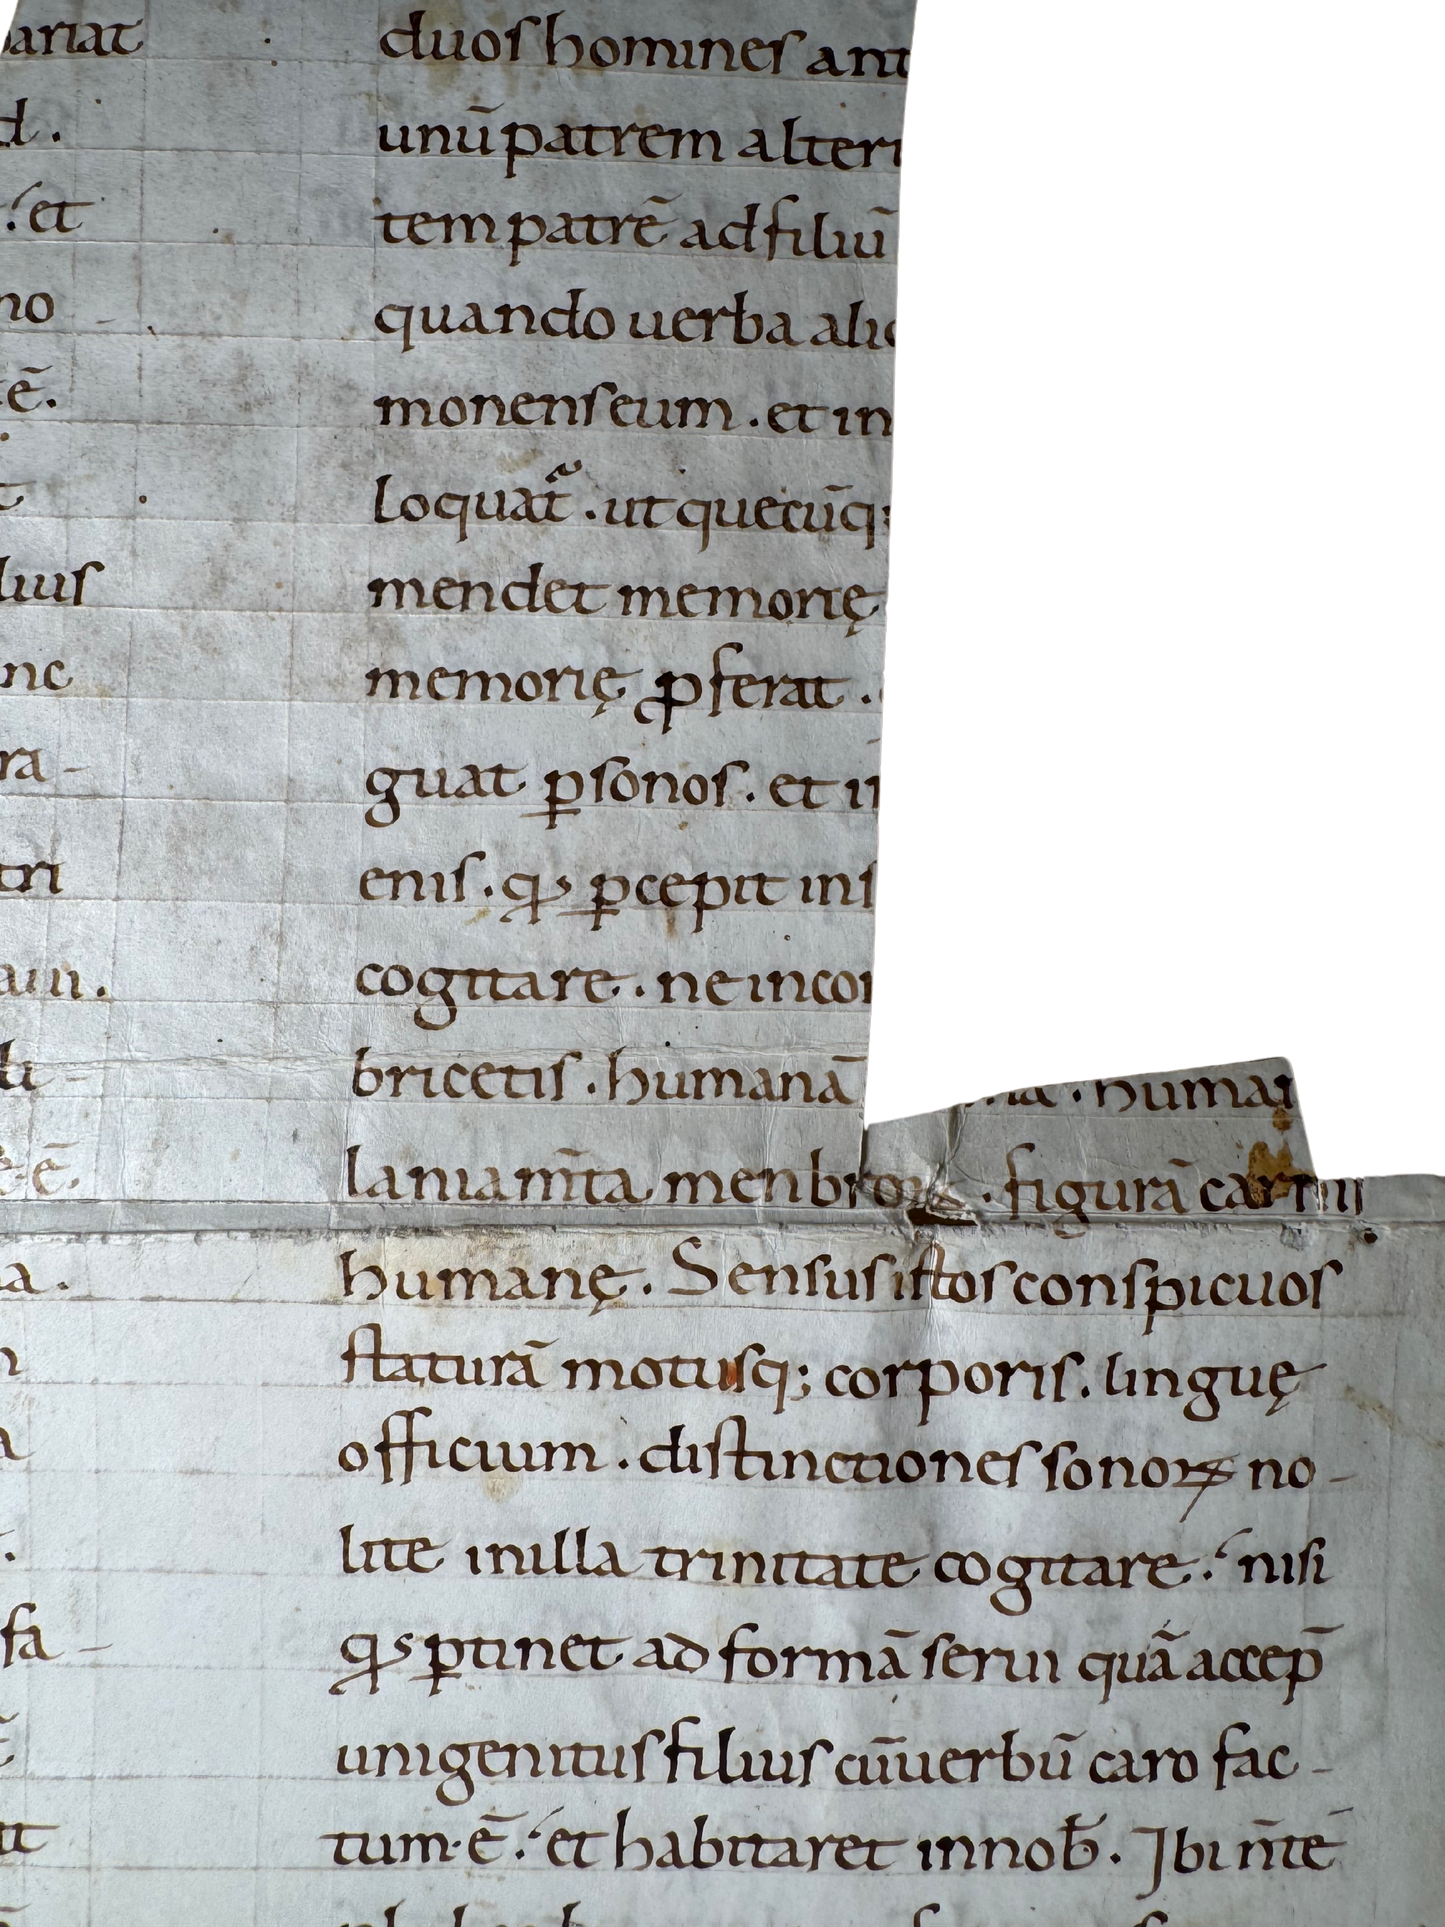 ariat
d.
et
no
ē.
t
lius
nc
ra-
tri
am.
li-
ē.
a.
n
a
.
fa-
tt
duos homines ant
unū patrem alteri
tem patrē ad filiū
quando uerba alic
monens eum . et in
loquat᷑ . ut quecūq;
mendet memorię
memorię ꝓferat .
guat ꝑsonos . et in
enis . qđ ꝑcepit in s
cogitare . ne in cor
bricetis . humanā
na . humai
laniam̄ta menbroꝝ . figurā carni
humanę . Sensus istos conspicuos
staturā motusq; corporis . linguę
officium . distinctiones sonoꝝ no-
lite in illa trinitate cogitare . nisi
qđ ꝑtinet ad formā serui quā accep̄
unigenitus filius cū uerbū caro fac-
tum . ē . et habitaret in nob̄ . Ibi n̄ tē